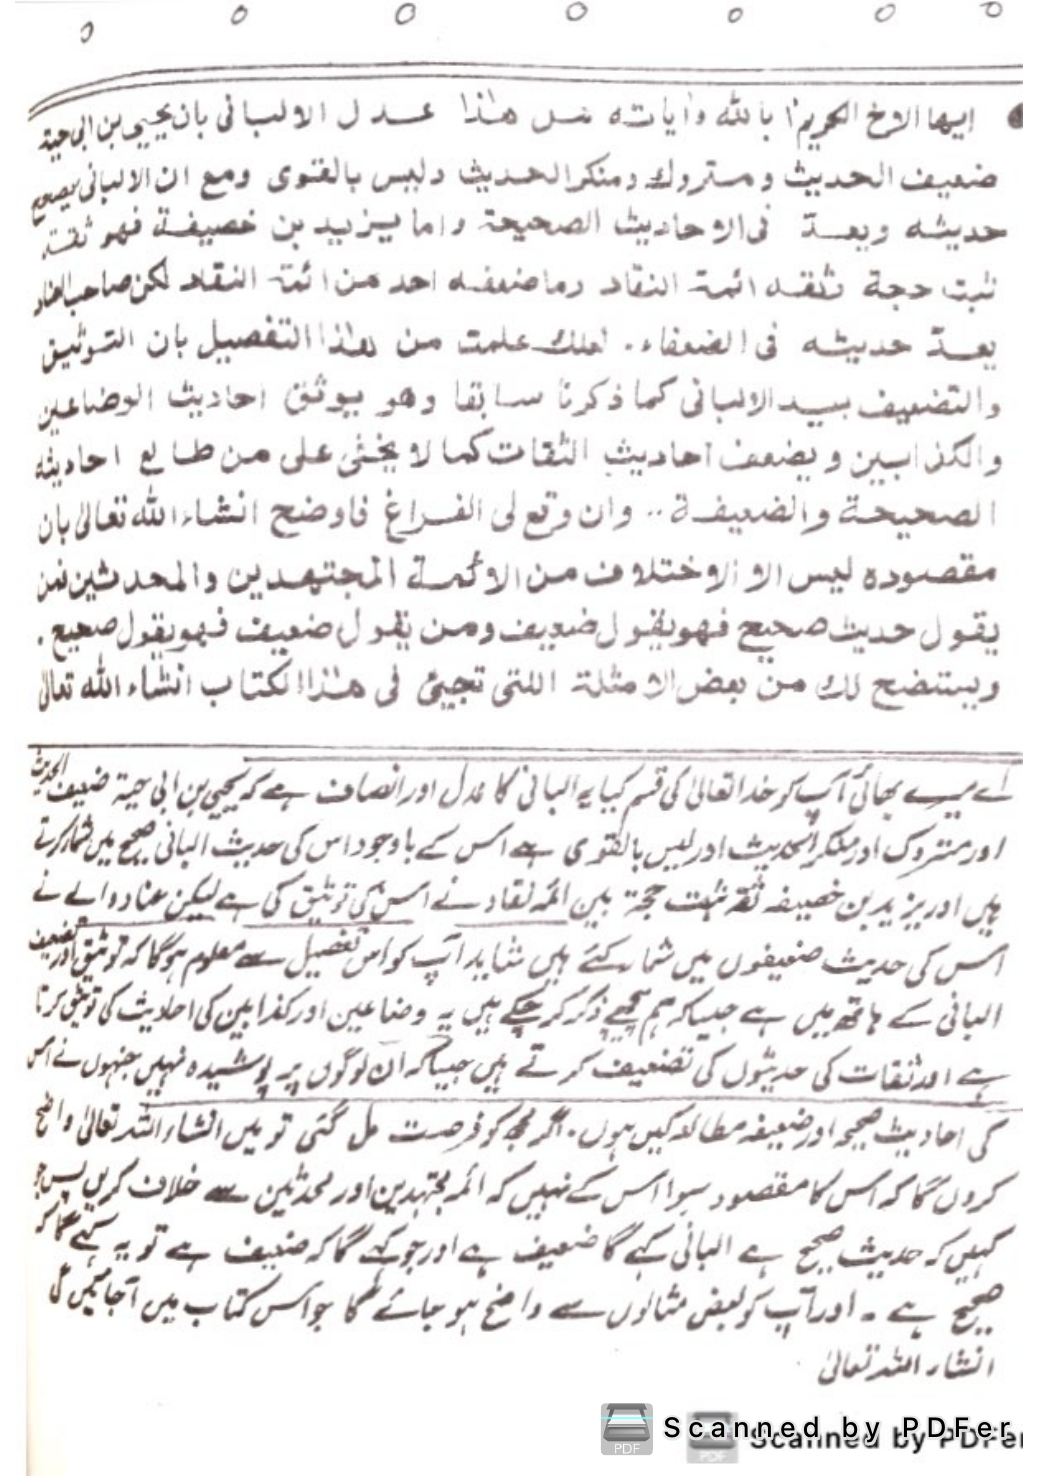 ايها الاخ الكريم! بالله وآياته هل هذا عدل الالبانى بان يحيى بن ابى حية
ضعيف الحديث ومتروك ومنكر الحديث وليس بالقوى ومع ان الالبانى يصحح
حديثه ويعدّ فى الاحاديث الصحيحة واما يزيد بن خصيفة فهو ثقة
ثبت حجة وثقه ائمة النقاد وما ضعفه احد من ائمة النقاد لكن صاحب العناد
يعدّ حديثه فى الضعفاء. لعلك علمت من هذا التفصيل بان التوثيق
والتضعيف بيد الالبانى كما ذكرنا سابقا وهو يوثق احاديث الوضاعين
والكذابين ويضعف احاديث الثقات كما لا يخفى على من طالع احاديثه
الصحيحة والضعيفة.. وان وقع لى الفراغ فاوضح انشاء الله تعالى بان
مقصوده ليس الا الاختلاف من الائمة المجتهدين والمحدثين فمن
يقول حديث صحيح فهو يقول ضعيف ومن يقول ضعيف فهو يقول صحيح.
ويتضح لك من بعض الامثلة اللتى تجيئ فى هذا الكتاب انشاء الله تعالى
اے میرے بھائی آپ کو خدا تعالیٰ کی قسم کیا یہ البانی کا عدل اور انصاف ہے کہ یحییٰ بن ابی حیۃ ضعیف الحدیث
اور متروک اور منکر الحدیث اور لیس بالقوی ہے اس کے باوجود اس کی حدیث البانی صحیح میں شمار کرتے
ہیں اور یزید بن خصیفہ ثقہ ثبت حجۃ ہیں ائمہ نقاد نے اس کی توثیق کی ہے لیکن عناد والے نے
اس کی حدیث ضعیفوں میں شمار کئے ہیں شاید آپ کو اس تفصیل سے معلوم ہوگا کہ توثیق اور تضعیف
البانی کے ہاتھ میں ہے جیسا کہ ہم پیچھے ذکر کر چکے ہیں یہ وضاعین اور کذابین کی احادیث کی توثیق کرتا
ہے اور ثقات کی حدیثوں کی تضعیف کرتے ہیں جیسا کہ ان لوگوں پر پوشیدہ نہیں جنہوں نے اس
کی احادیث صحیحہ اور ضعیفہ مطالعہ کیں ہوں۔ اگر مجھ کو فرصت مل گئی تو میں انشاء اللہ تعالیٰ واضح
کروں گا کہ اس کا مقصود سوا اس کے نہیں کہ ائمہ مجتہدین اور محدثین سے خلاف کریں پس جو
کہیں کہ حدیث صحیح ہے البانی کہے گا ضعیف ہے اور جو کہے گا کہ ضعیف ہے تو یہ کہے گا کہ
صحیح ہے ۔ اور آپ کو بعض مثالوں سے واضح ہو جائے گا جو اس کتاب میں آجائیں گی
انشاء اللہ تعالیٰ
Scanned by PDFer
Scanned by PDFer